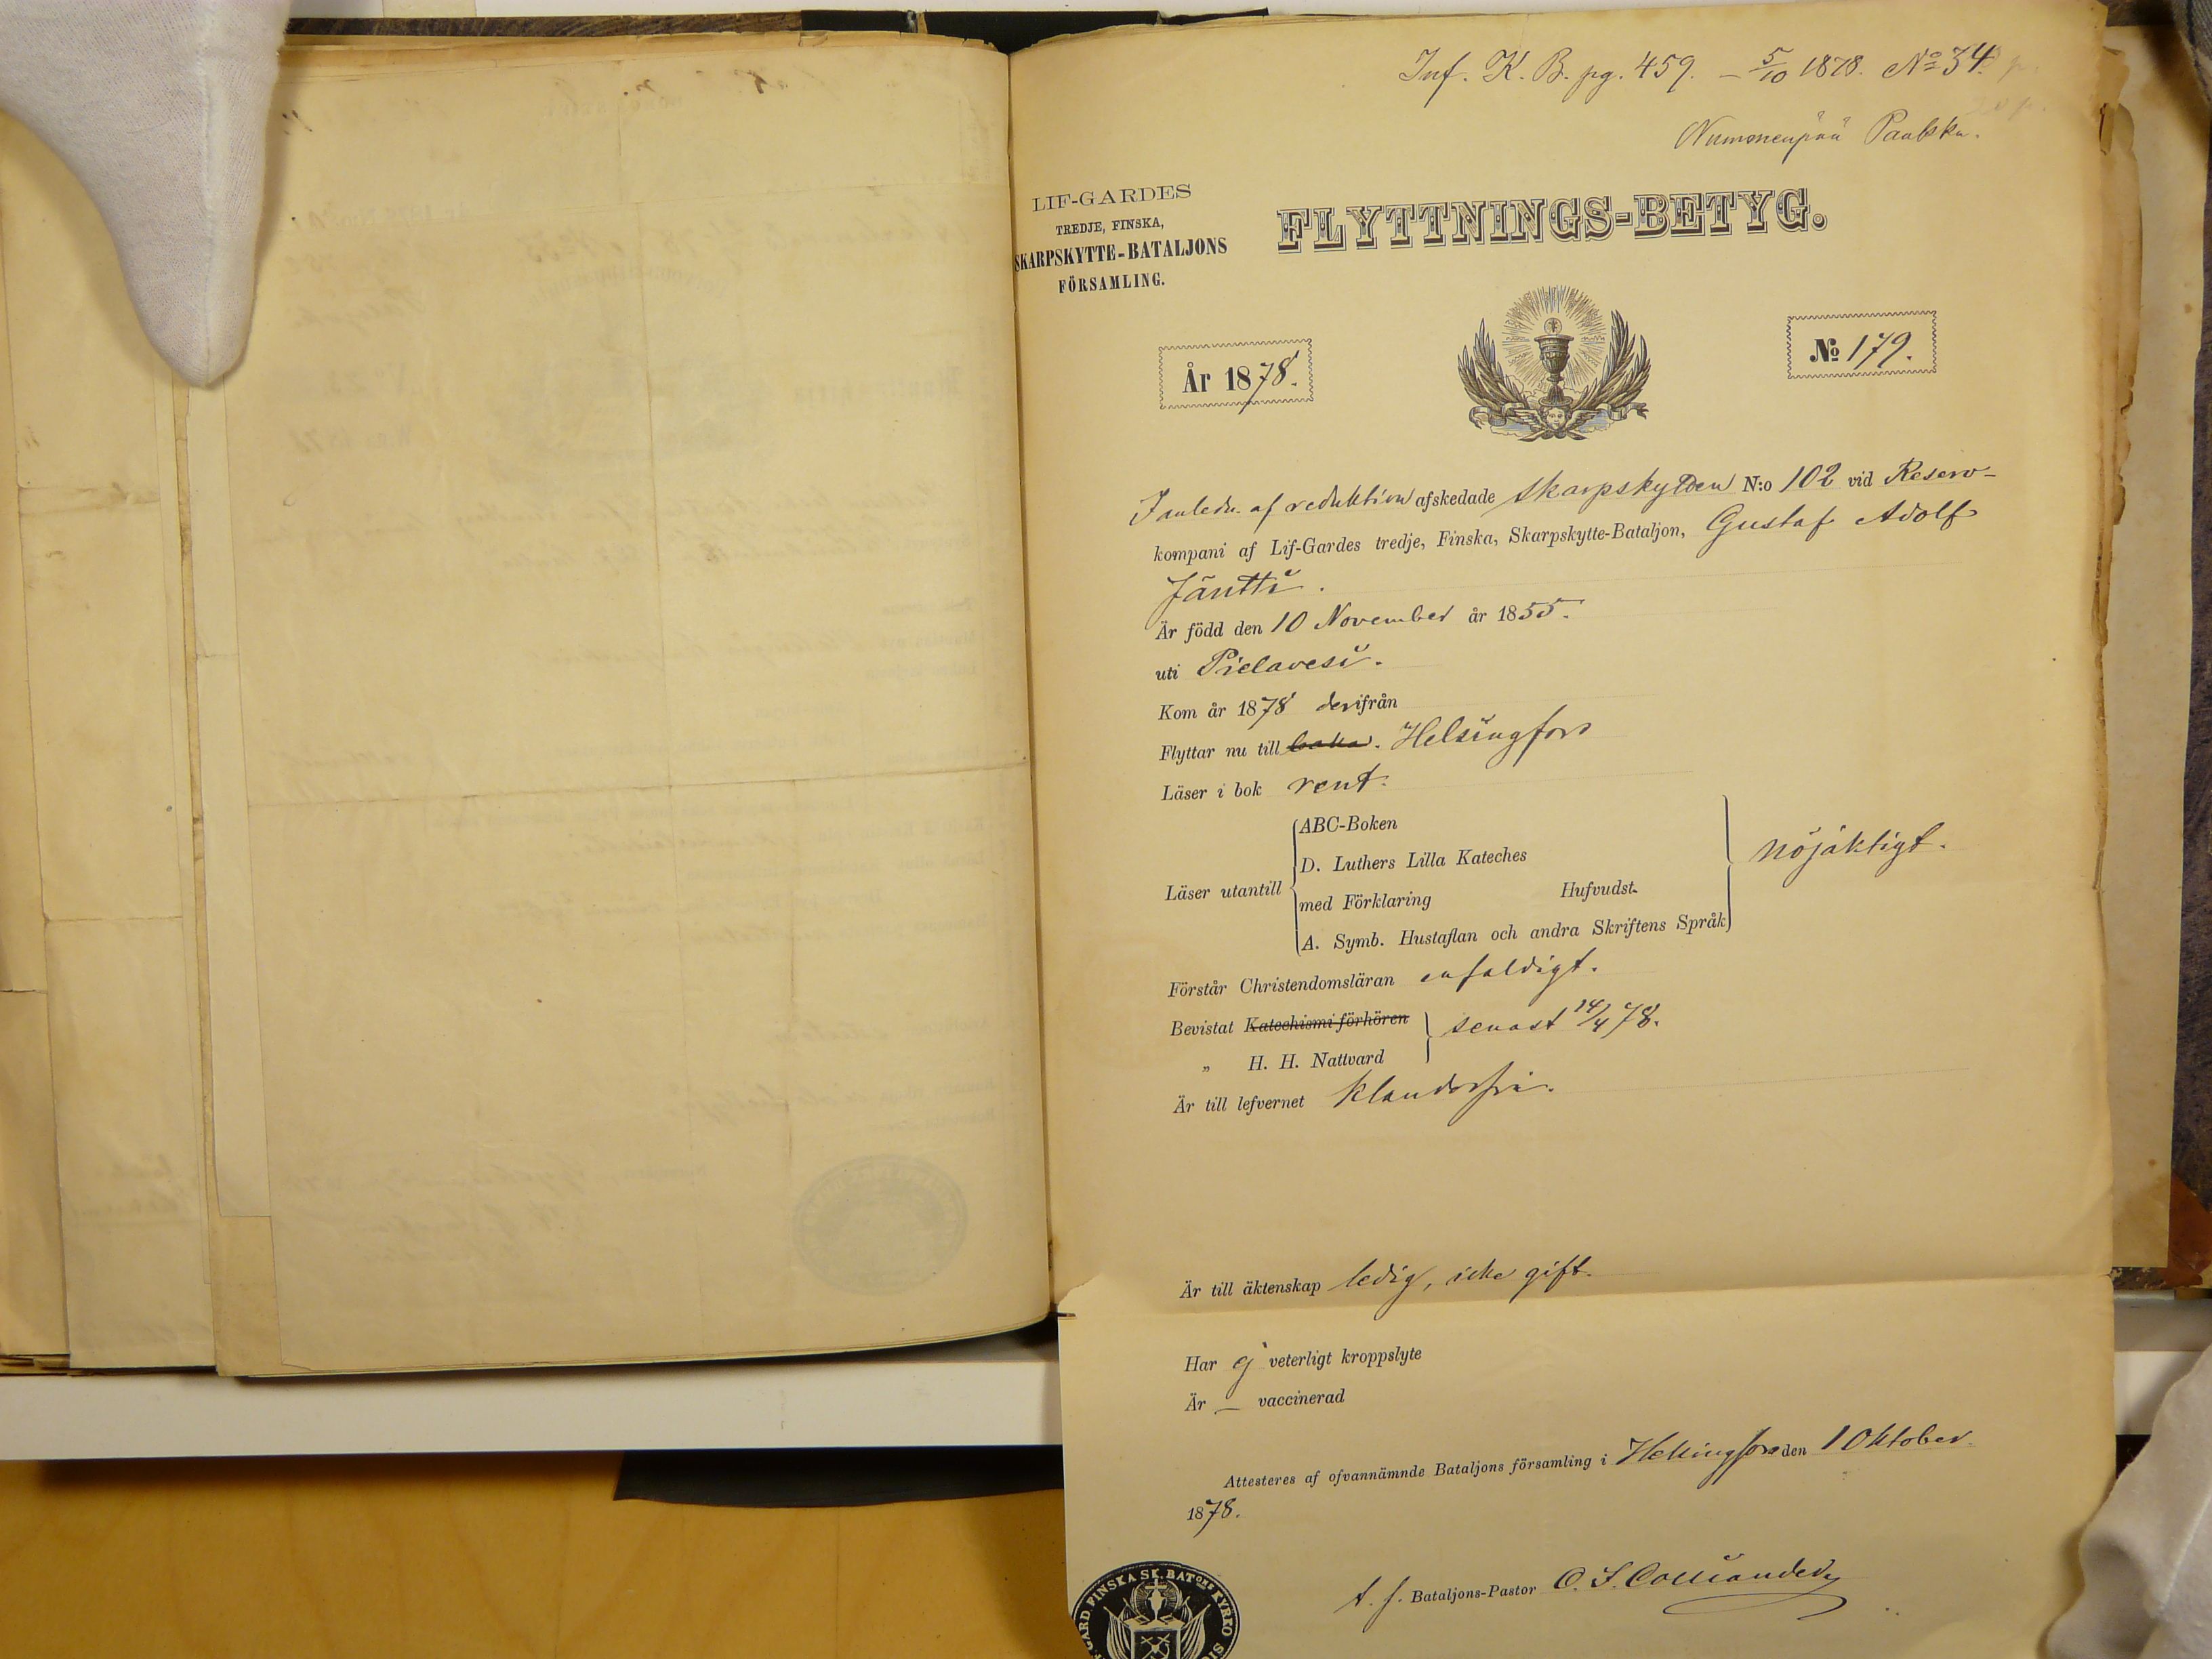 Inf. K. B. pg. 459. – 5/10 1878. No 34.
Nummenpää
LIF-GARDES
TREDJE, FINSKA,
SKARPSKYTTE-BATALJONS
FÖRSAMLING.
FLYTTNINGS-BETYG.
År 1878.
No 179.
I anledn. af reduktion afskedade skarpskytten N:o 102 vid Reserv-
kompani af Lif-Gardes tredje, Finska, Skarpskytte-Bataljon, Gustaf Adolf
Jäntti.
Är född den 10 November år 1855.
uti Pielavesi.
Kom år 1878 derifrån
Flyttar nu till baka. Helsingfors
Läser i bok rent.
Läser utantill
ABC-Boken
D. Luthers Lilla Kateches
med Förklaring Hufvudst.
A. Symb. Hustaflan och andra Skriftens Språk
nöjaktigt.
Förstår Christendomsläran enfaldigt.
Bevistat Katechismi förhören
„ H. H. Nattvard
senast 14/4 78.
Är till lefvernet klanderfri.
Är till äktenskap ledig, icke gift.
Har ej veterligt kroppslyte
Är — vaccinerad
Attesteres af ofvannämnde Bataljons församling i Helsingfors den 1 Oktober
1878.
t. f. Bataljons-Pastor
GARD FINSKA SK. BATONS KYRKO